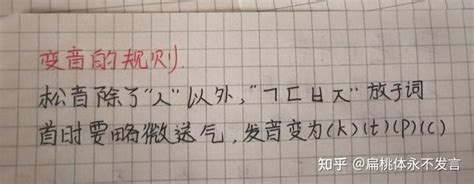 变音的规则
松音除了“ㅅ”以外，“ㄱㄷㅂㅈ”放于词
首时要略微送气，发音变为(k)(t)(p)(c)
知乎 @扁桃体永不发言